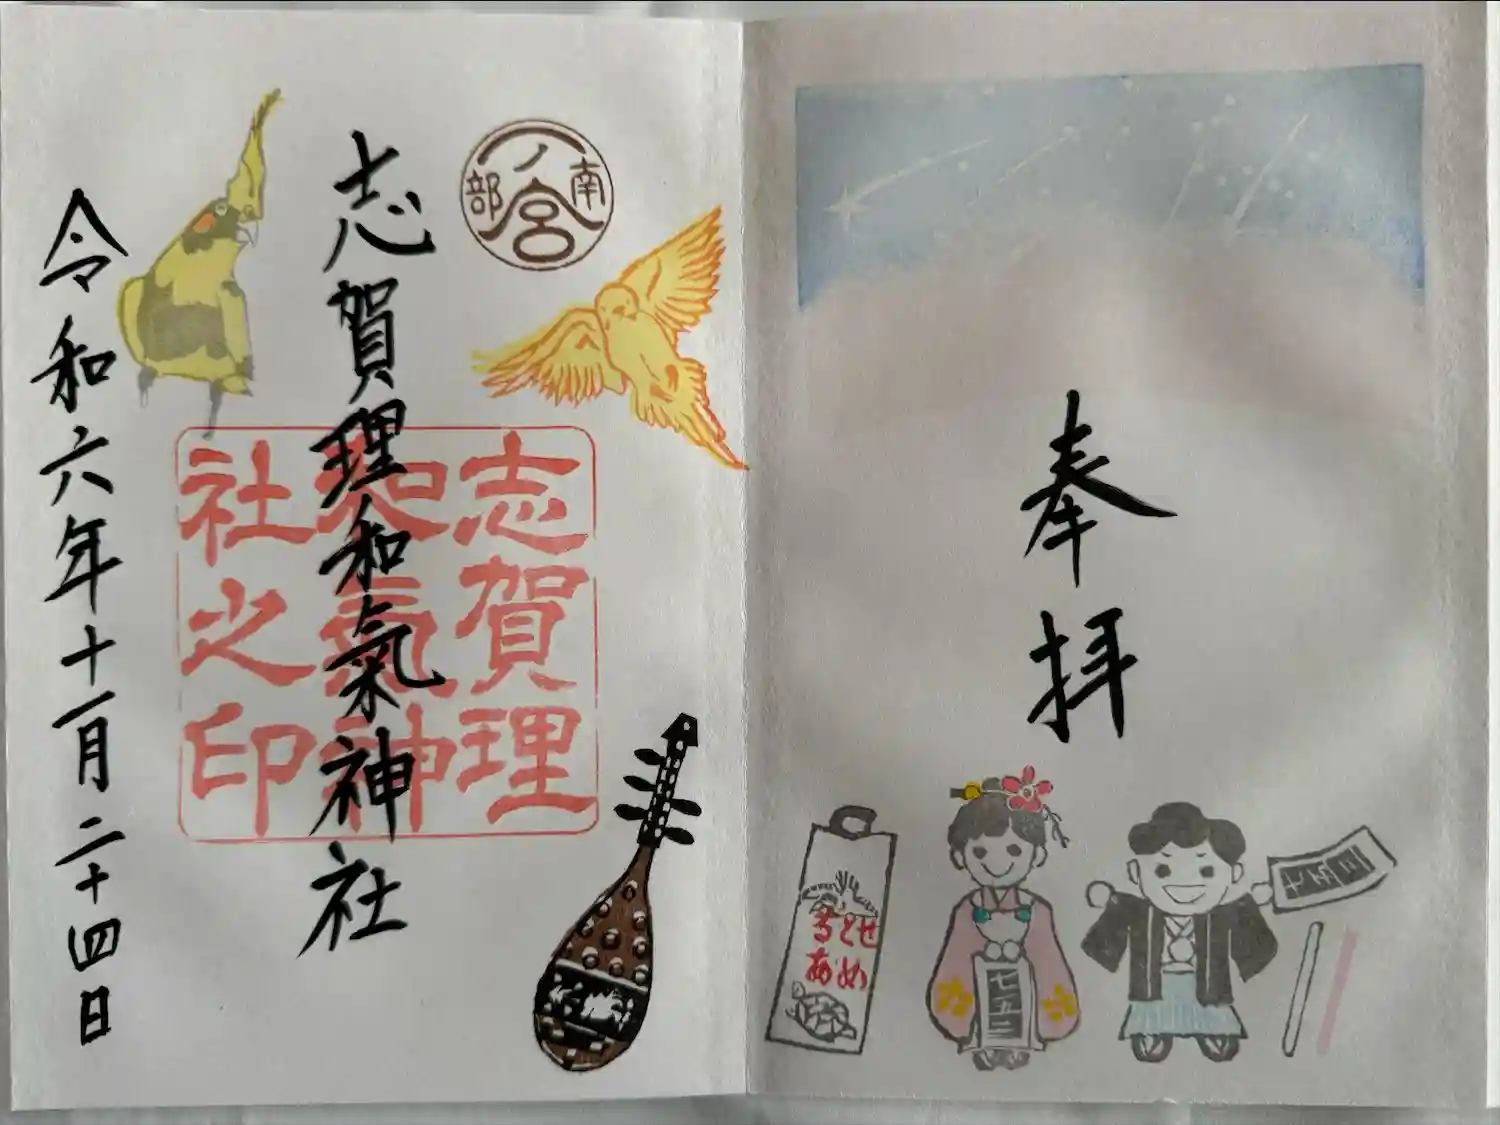 奉拝
ちとせ
あめ
七五三
七五三
南部
一ノ宮
志賀理和氣神社
志賀理
和氣神
社之印
令和六年十一月二十四日